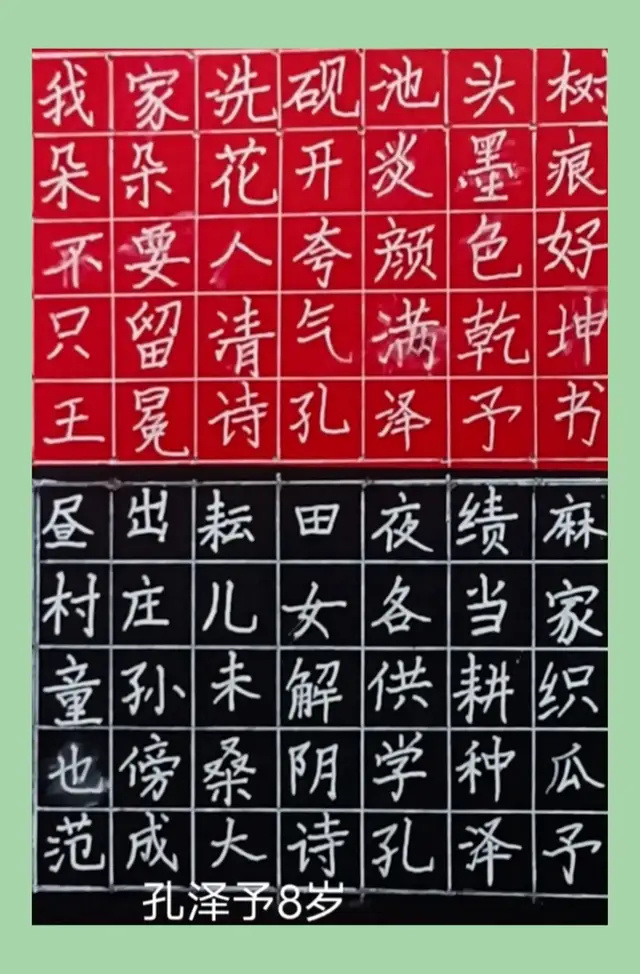 我家洗砚池头树
朵朵花开淡墨痕
不要人夸颜色好
只留清气满乾坤
王冕诗孔泽予书
昼出耘田夜绩麻
村庄儿女各当家
童孙未解供耕织
也傍桑阴学种瓜
范成大诗孔泽予
孔泽予8岁